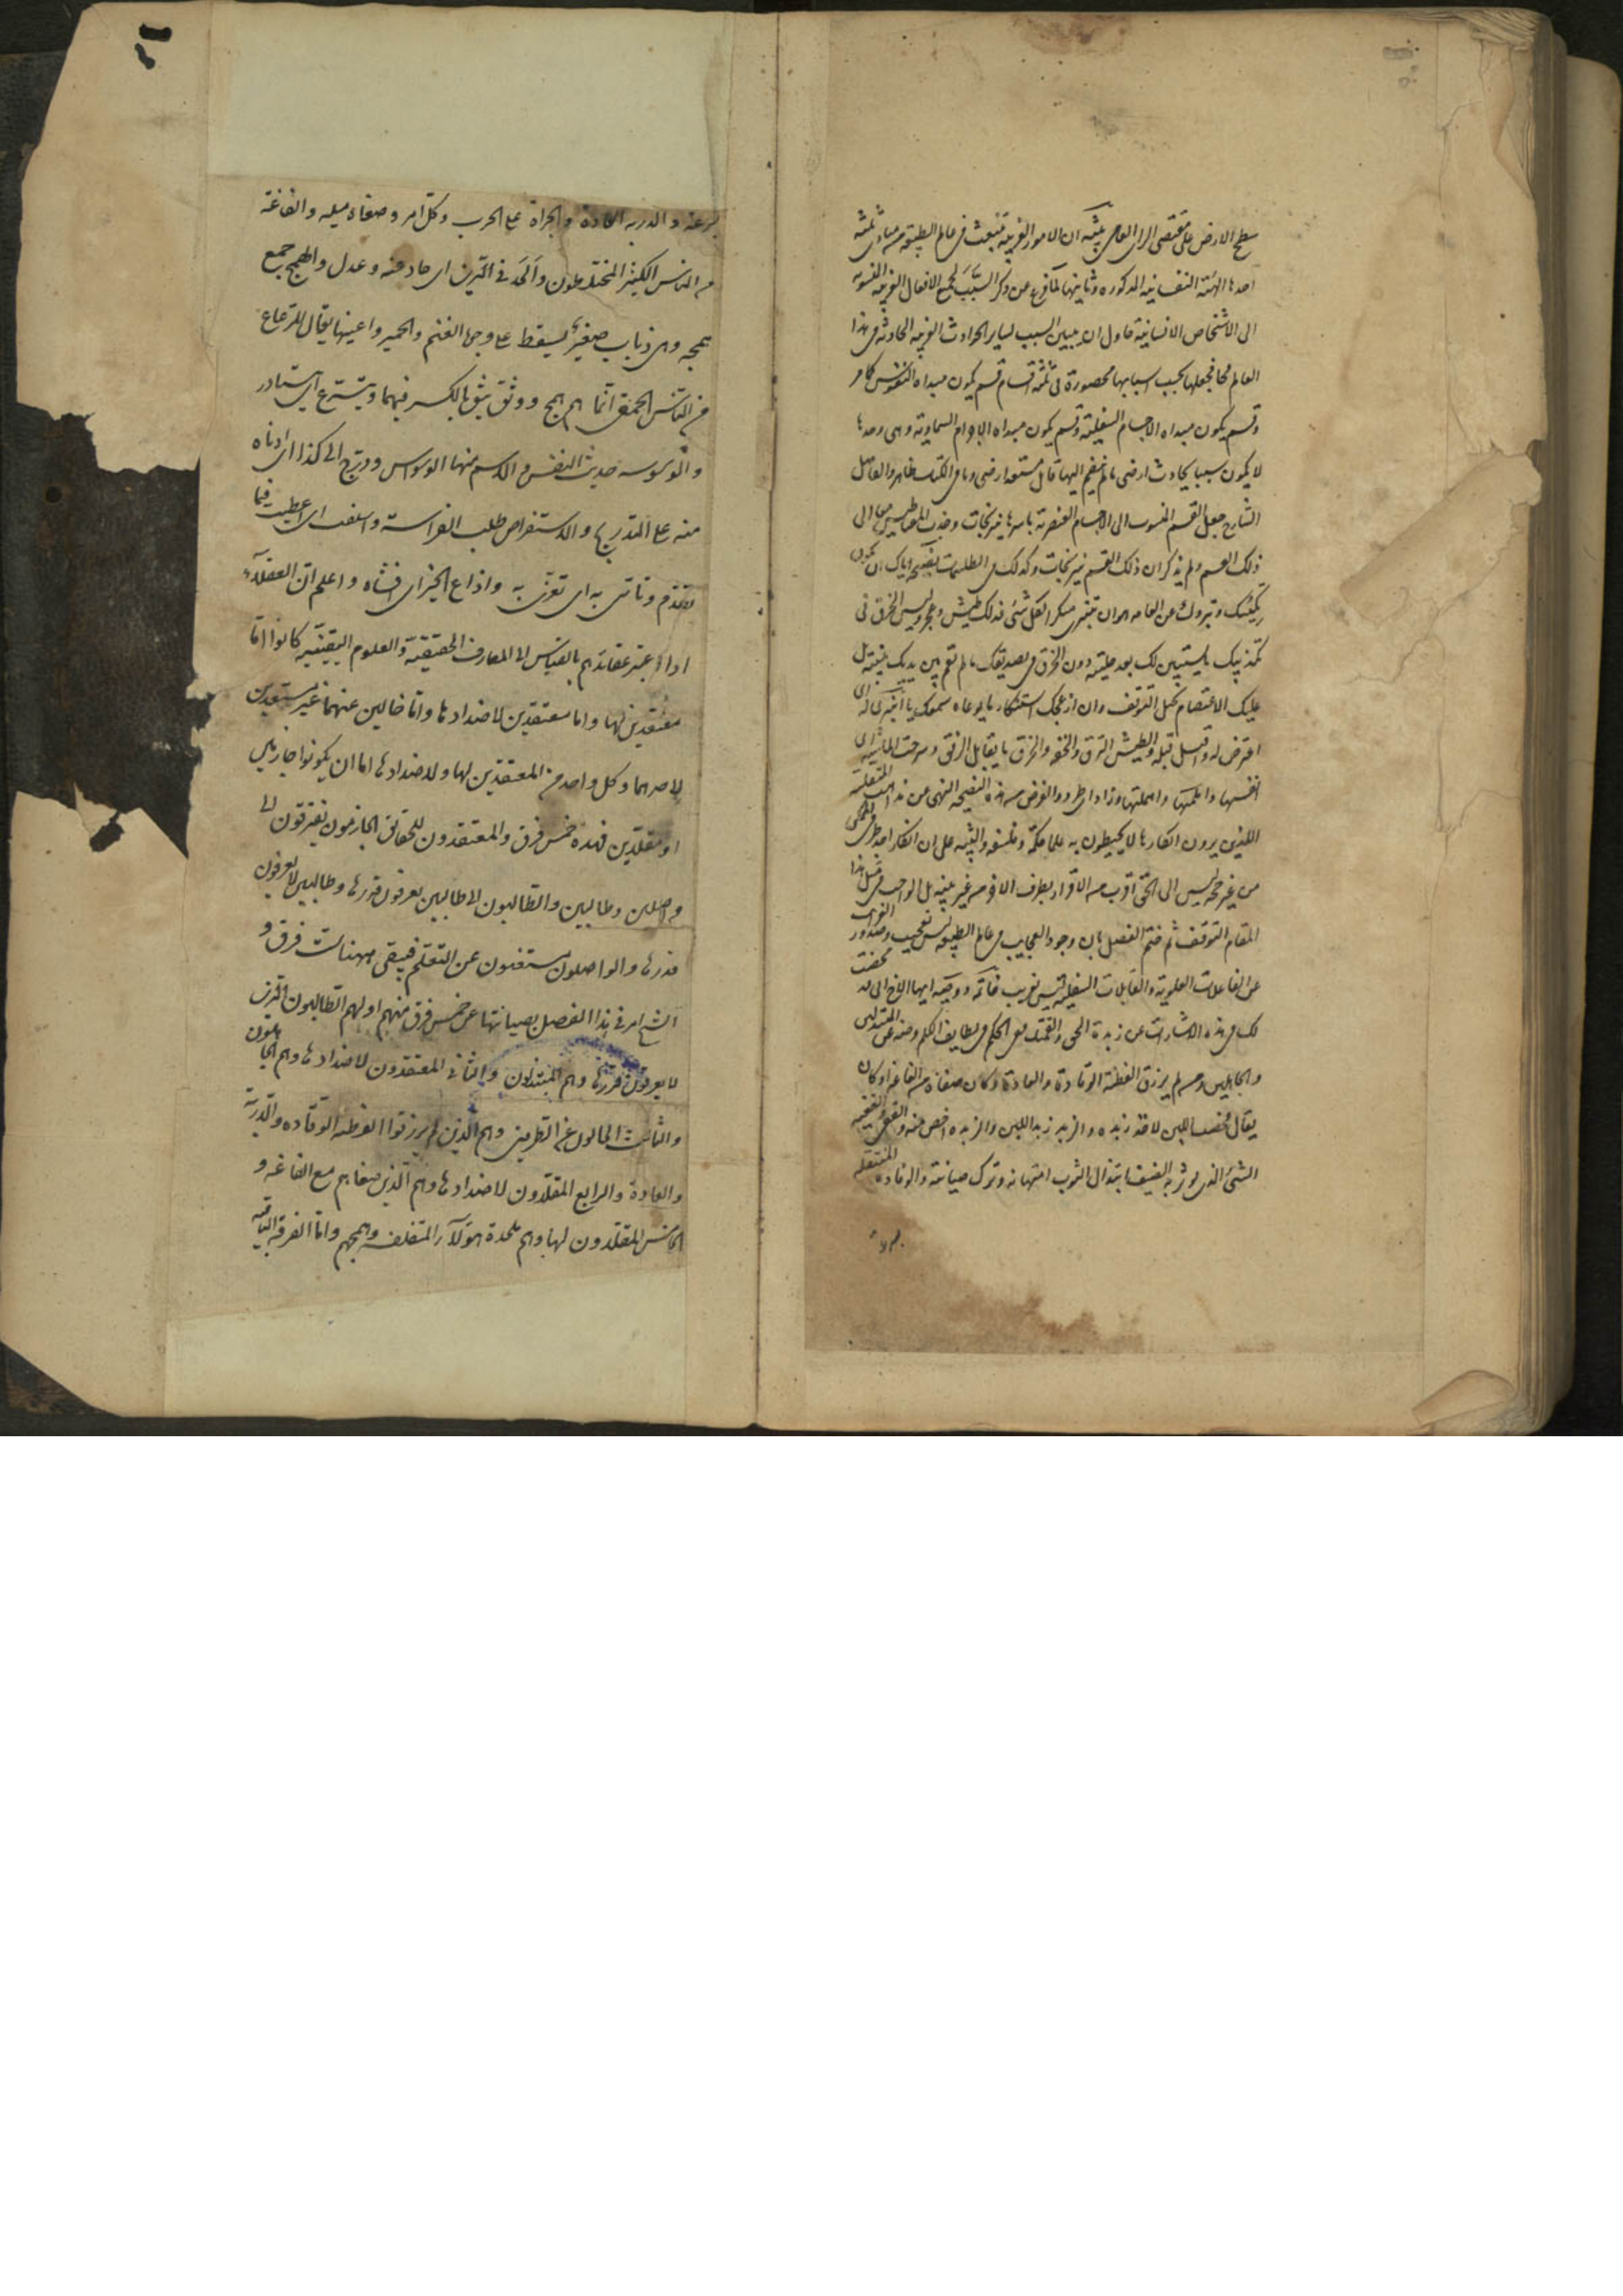 سطح الارض على مقتضى الراى العامى تنبيه ان الامور الغريبة تنبعث فى عالم الطبيعة من مبادى ثلثة
احدها الهيئة النفسانية المذكورة وثانيها لما فرغ عن ذكر السبب لجميع الافعال الغريبة المنسوبة
الى الاشخاص الانسانية حاول ان يبين السبب لساير الحوادث الغريبة الحادثة فى هذا
العالم فجعلها بحسب اسبابها محصورة فى ثلثة اقسام قسم يكون مبداه النفوس كما مر
وقسم يكون مبداه الاجسام السفلية وقسم يكون مبداه الاجرام السماوية وهى وحدها
لا يكون سببا لحادث ارضى ما لم ينضم اليها قابل مستعد ارضى وما فى الكتاب ظاهر والفاضل
الشارح جعل القسم المنسوب الى الاجسام العنصرية باسرها نيرنجات وجذب المغناطيس الى
ذلك القسم ولم يذكر ان ذلك القسم نيرنجات وكذلك فى الطلسمات نصيحة اياك ان يكون
تكيسك وتبروك عن العامة هو ان تنبرى منكرا لكل شئ فذلك طيش وعجز وليس الخرق فى
تكذيبك ما لم يستبن لك بعد جليته دون الخرق فى تصديقك ما لم تقم بين يديك بينته بل
عليك الاعتصام بحبل التوقف وان ازعجك استنكار ما يوعاه سمعك
اعترض له واقبل قبله والطيش النزق والخفة والخرق ما يقابل الرفق وسرحت الماشية اى
انفشتها واهملتها وذاد اى طرد والغرض من هذه النصيحة النهى عن مذاهب المتفلسفة
الذين يرون انكار ما لا يحيطون به علما حكمة وفلسفة والتنبيه على ان انكار احد طرفى الممكن
من غير حجة ليس الى الحق اقرب من الاقرار بطرفه الاخر من غير بينة بل الواجب فى مثل هذا
المقام التوقف ثم ختم الفصل بان وجود العجايب فى عالم الطبيعة ليس بعجيب وصدور الغرايب
عن الفاعلات العلوية والقابلات السفلية ليس بغريب خاتمة ووصية ايها الاخ انى قد مخضت
لك فى هذه الاشارات عن زبدة الحق والقمتك قفى الحكم فى لطايف الكلم فصنه عن المبتذلين
والجاهلين ومن لم يرزق الفطنة الوقادة والعادة وكان صغاه مع الغاغة او كان
يقال مخضت اللبن لاخذ زبده والزبد زبد اللبن والزبدة اخص منه والقفى
الشئ الذى يؤثر به الضيف وابتذال الثوب امتهانه وترك صيانته والوقادة المشتعلة
بسرعة والدربة العادة والجراة على الحرب وكل امر وصغاه ميله والغاغة
من الناس الكثير المختلطون والحد فى الدين اى حاد عنه وعدل والهمج جمع
همجه وهى ذباب صغير يسقط على وجوه الغنم والحمير واعينها يقال للرعاع
من الناس الحمقى انما هم همج ووثق يثق بالكسر فيهما ويتسرع اى يتبادر
والوسوسة حديث النفس والاسم منها الوسواس ودرج الى كذا اى ادناه
منه على التدريج والاستفراس طلب الفراسة واسلفت اى اعطيت فيما
تقدم وتاسى به اى تعزى به واذاع الخبر اى افشاه واعلم ان العقلاء
اذا اعتبر عقايدهم بالقياس الى المعارف الحقيقية والعلوم اليقينية كانوا اما
معتقدين لها واما معتقدين لاضدادها واما خالين عنهما غير مستعدين
لاحدهما وكل واحد من المعتقدين لها ولاضدادها اما ان يكونوا جازمين
او مقلدين فهذه خمس فرق والمعتقدون للحقائق الجازمون يفترقون الى
واصلين وطالبين والطالبون الى طالبين يعرفون قدرها وطالبين لا يعرفون
قدرها والواصلون مستغنون عن التعلم فبقى ههنا ست فرق و
الشيخ امر فى هذا الفصل بصيانتها عن خمس فرق منهم اولهم الطالبون الذين
لا يعرفون قدرها وهم المبتذلون والثانى المعتقدون لاضدادها وهم الجاهلون
والثالث الخالون عن الطرفين وهم الذين لم يرزقوا الفطنة الوقادة والدربة
والعادة والرابع المقلدون لاضدادها وهم الذين صغاهم مع الغاغة و
الخامس المقلدون لها وهم ملحدة هؤلاء المتفلسفة وهمجهم واما الفرقة الباقية